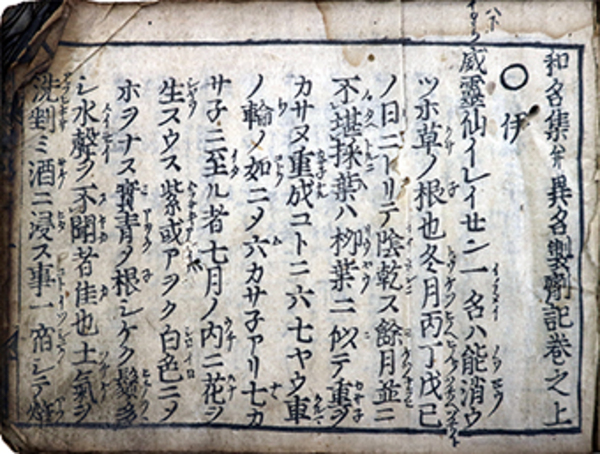 和名集并異名製劑記巻之上
〇 伊
威靈仙イレイセン一名ハ能消ウ
ツホ草ノ根也冬月丙丁戊己
ノ日ニトリテ陰乾ス餘月並ニ
不堪採葉ハ栁葉ニ似テ重ヲ
カサヌ重成コトニ六七ヤウ車
ノ輪ノ如ニメ六カサ子アリ七カ
サ子ニ至ル者七月ノ内ニ花ヲ
生スウス紫或アヲク白色ニメ
ホヲナス實青ノ根シケク鬚多
シ水聲ヲ不聞者佳也土氣ヲ
洗剉ミ酒ニ浸ス事一宿シテ